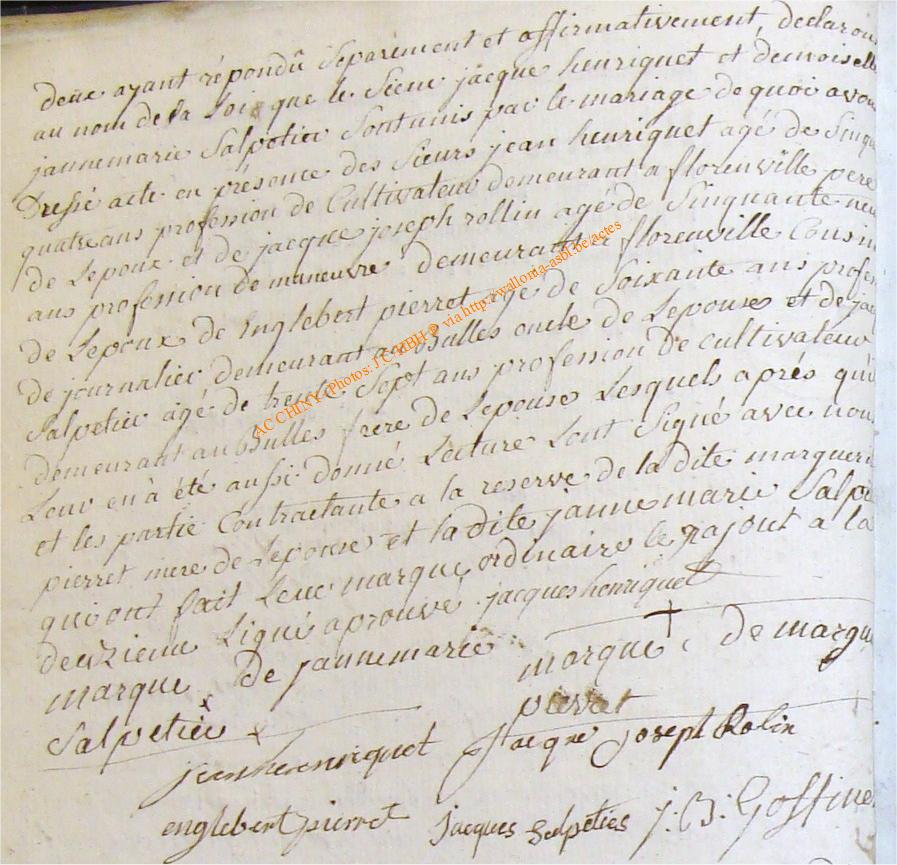 deux ayant répondû Séparément et affirmativement declarons
au nom de la Loi que le Sieur jacque henriquet et demoiselle
jannemarie Salpetier Sont unis par le mariage de quoi avon
Dressé acte en présence des Sieurs jean henriquet agé de Sinqu
quatre ans profession de Cultivateur demeurant a florenville pere
de Lepoux et de jacque joseph rollin agé de Sinquante neu
ans profession de maneuvre demeurant a florenville Cousin
de Lepoux de Englebert pierret age de Soixante ans profes
de journalier demeurant au Bulles oncle de Lepouse et de jac
Salpetier agé de trente Sept ans profession de cultivateur
demeurant au Bulles frere de Lepouse Lesquels aprés qu'il
Leur en à été aussi donné Lecture Lont Signé avec nous
et les partie Contractante a la reserve de la dite margueri
pierret mere de Lepouse et la dite jannemarie Salpe
qui ont fait Leur marque ordinaire le rajout a la
deuzieme Ligne aprouvé jacques henriquet
marque de jannemarie marque de margu
Salpetier pierret
jean henriquet jacque joseph Rolin
englebert pierret jacques Salpeties j: B: Goffine
AC CHINY (Photos: J C MBH © via http://wallonia-asbl.be/actes